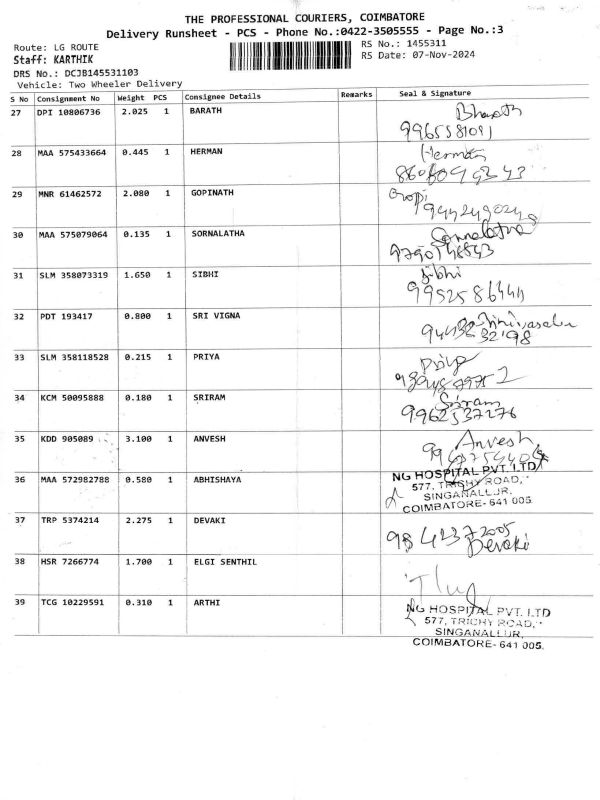 THE PROFESSIONAL COURIERS, COIMBATORE
Delivery Runsheet - PCS - Phone No.:0422-3505555 - Page No.:3
Route: LG ROUTE
RS No.: 1455311
Staff: KARTHIK
RS Date: 07-Nov-2024
DRS No.: DCJB145531103
Vehicle: Two Wheeler Delivery
S No Consignment No Weight PCS Consignee Details Remarks Seal & Signature
27 DPI 10806736 2.025 1 BARATH Bharath
9965581091
28 MAA 575433664 0.445 1 HERMAN Herman
29 MNR 61462572 2.080 1 GOPINATH Gopi
30 MAA 575079064 0.135 1 SORNALATHA Sornalatha
9790148843
31 SLM 358073319 1.650 1 SIBHI Sibhi
32 PDT 193417 0.800 1 SRI VIGNA
33 SLM 358118528 0.215 1 PRIYA
34 KCM 50095888 0.180 1 SRIRAM Sriram
9962537276
35 KDD 905089 3.100 1 ANVESH Anvesh
36 MAA 572982788 0.580 1 ABHISHAYA NG HOSPITAL PVT. LTD
577, TRICHY ROAD,
SINGANALLUR,
COIMBATORE- 641 005.
37 TRP 5374214 2.275 1 DEVAKI 9842372005
Devaki
38 HSR 7266774 1.700 1 ELGI SENTHIL
39 TCG 10229591 0.310 1 ARTHI NG HOSPITAL PVT. LTD
577, TRICHY ROAD,
SINGANALLUR,
COIMBATORE- 641 005.